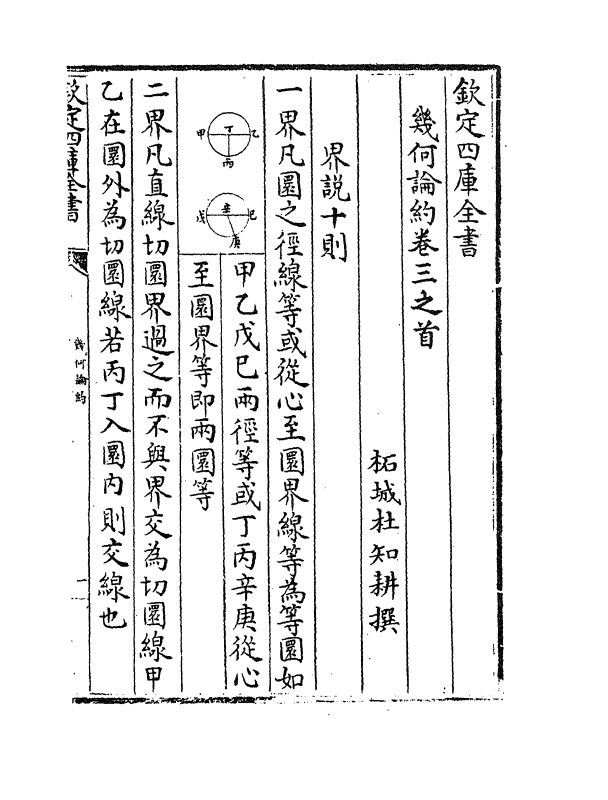 欽定四庫全書
幾何論約卷三之首
柘城杜知耕撰
界說十則
一界凡圜之徑線等或從心至圜界線等為等圜如
甲
乙
丁
丙
戊
己
辛
庚
甲乙戊巳兩徑等或丁丙辛庚從心
至圜界等即兩圜等
二界凡直線切圜界過之而不與界交為切圜線甲
乙在圜外為切圜線若丙丁入圜内則交線也
欽定四庫全書
幾何論約
一